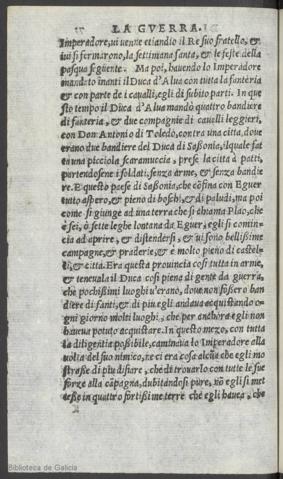 LA GVERRA.
Imperadore, ui uenne etiandio il Re suo fratello, &
iui si fermarono, la settimana santa, & le feste della
pasqua seguente. Ma poi, hauendo lo Imperadore
mandato inanti il Duca d'Alua con tutta la fanteria
& con parte de i caualli, egli di subito partì. In que
sto tempo il Duca d'Alua mandò quattro bandiere
di fanteria, & due compagnie di caualli leggieri,
con Don Antonio di Toledo, contra una città, doue
erano due bandiere del Duca di Sassonia, il quale fat
ta una picciola scaramuccia, prese la città à patti,
partendosene i soldati, senza arme, & senza bandie
re. E questo paese di Sassonia, che cõfina con Eguer
tutto aspero, & pieno di boschi, & di paludi, ma poi
come si giunge ad una terra che si chiama Plao, che
è sei, ò sette leghe lontana da Eguer, egli si comin-
cia ad aprire, & distendersi, & ui sono bellissime
campagne, & praderie, & è molto pieno di castel-
li, & città. Era questa prouincia così tutta in arme,
& teneuala il Duca così piena di gente da guerra,
che pochissimi luoghi u'erano, doue non fosser o ban
diere di fanti, & di piu egli andaua acquistando o-
gni giorno molti luoghi, che per anchora egli non
haueua potuto acquistare. In questo mezo, con tutta
la diligentia possibile, caminaua lo Imperadore alla
uolta del suo nimico, ne ci era cosa alcũa che egli mo
strasse di piu disiare, che di trouarlo con tutte le sue
forze alla cãpagna, dubitandosi pure, nõ egli si met
tesse in quattro fortissime terre che egli hauea, che
Biblioteca de Galicia